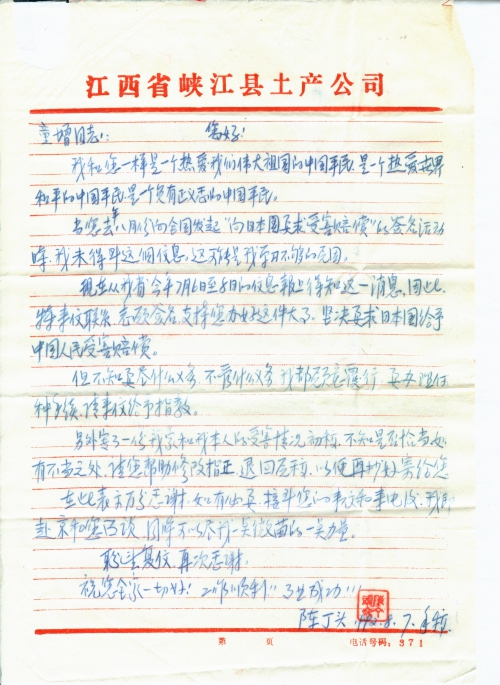 江西省峡江县土产公司
童增同志: 您好!
我和您一样是一个热爱我们伟大祖国的中国平民,是一个热爱世界
和平的中国平民,是一个负有正义感的中国平民。
当您去年八月份向全国发起“向日本国要求受害赔偿”的签名活动
时,我未得到这个信息,这说是我学习不够的原因。
现在从我省今年7月6日至8日的信息报上得知这一消息,因此
特来信联系,志愿签名支持您办好这件大事,坚决要求日本国给予
中国人民受害赔偿。
但不知要尽什么义务,不管什么义务我都愿意履行,要办理何
种手续,请来信给予指教。
另外写了一份我家和我本人的受害情况初稿,不知是否恰当,如
有不当之处,请您帮助修改指正,退回原稿,以便再抄好寄给您
在此表示万分感谢,如有必要,接到您们来信和来电后,我即
赴京和您面谈,同时可以尽我一点微薄的一点力量。
盼望复信,再次感谢。
祝您全家一切好!工作顺利!马上成功!!!
陈丁头 1992.8.7.
第 页 电话号码:371